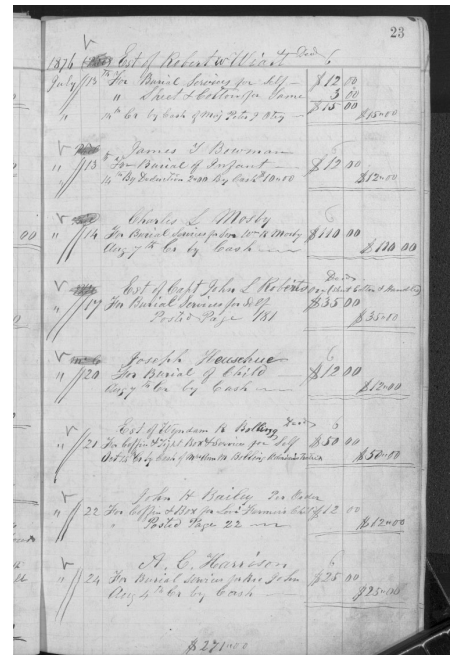 23
1876 Est of Robert W Wiatt Decd 6
July 13th For Burial Services for Self $12 00
" Sheet & Cotton for Same 3 00
$15 00
" 14th Cr by Cash of Maj Peter J Otey $15 00
James T Bowman 6
" 13th For Burial of Infant $12 00
14th By Deduction 2.00 By Cash $10.00 $12.00
Charles L Mosby 6
" 14 For Burial Services for Son Wm H Mosby $110 00
00 Aug 7th Cr by Cash $110 00
Est of Capt John L Roberts Decd
" 17 For Burial Services for Self $35 00
Posted Page 181 $35.00
Joseph 6
" 20 For Burial of Child $12 00
Aug 7th Cr by Cash $12.00
Est of Wyndham R Bolling Decd 6
" 21 For Coffin & Light Box & Service for Self $50 00
Oct 18th Cr by Cash of Bolling $50.00
John H Bailey Per Order
" 22 For Coffin & Box for Child $12 00
" Posted Page 22 $12.00
A. C. Harrison 6
" 24 For Burial Services for John $25 00
Aug 4th Cr by Cash $25.00
$271.00